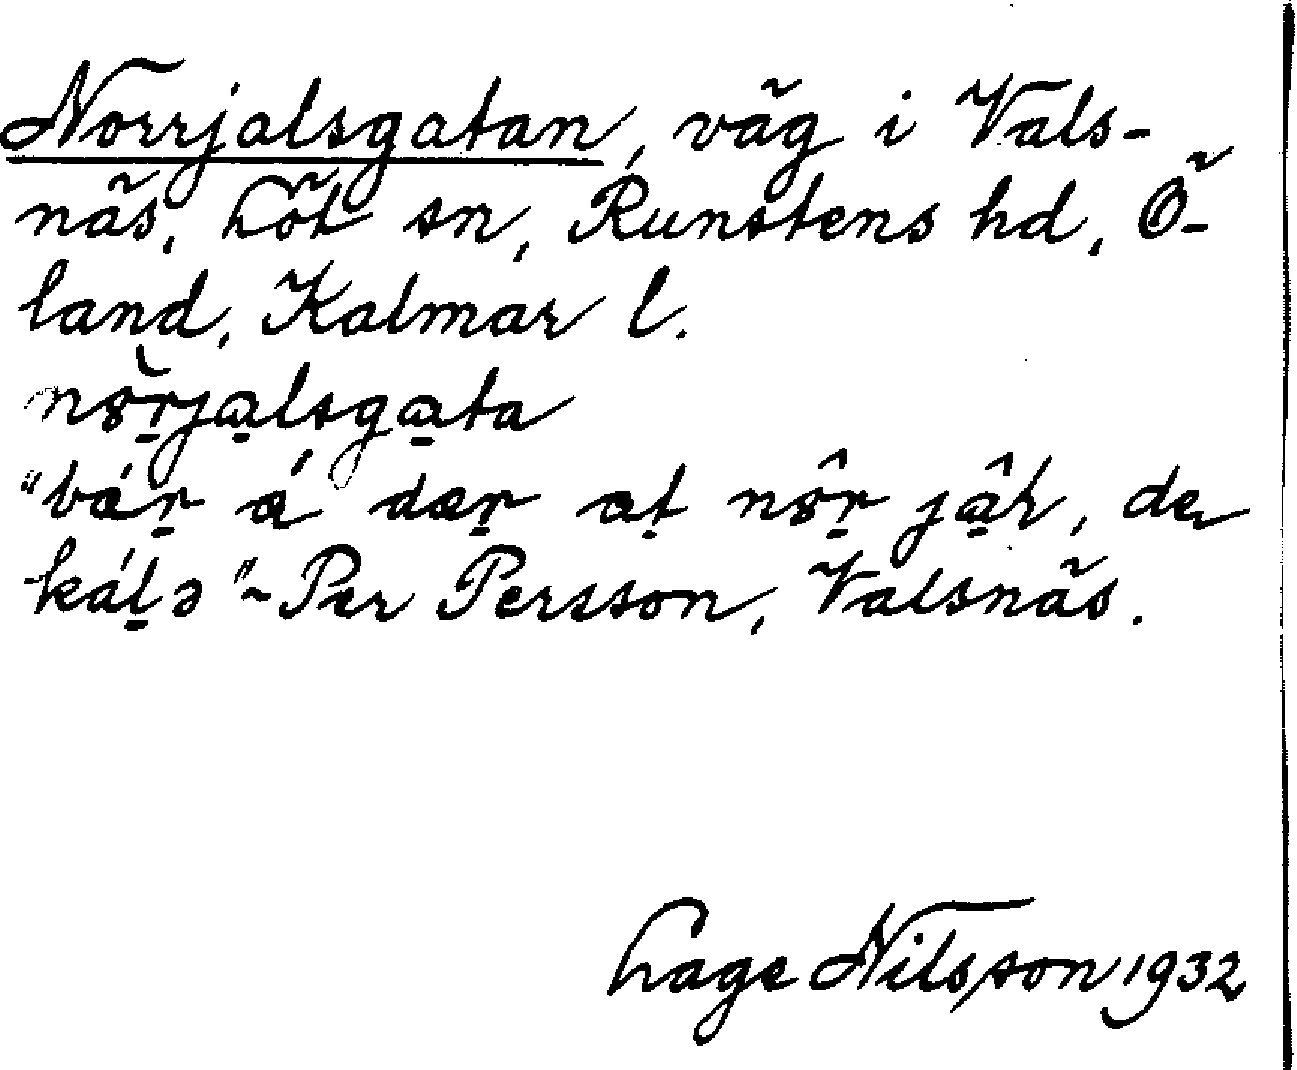 Norrjalsgatan, väg i Vals-
näs, Löt sn, Runstens hd, Ö-
land, Kalmar l.
nɷ̌r̠ja̠lsga̠ta
"bǽr̠ á dær̠ at̠ nɷ̂r̠ jâ̠l, de
kál̠ə" - Per Persson, Valsnäs.
Lage Nilsson 1932